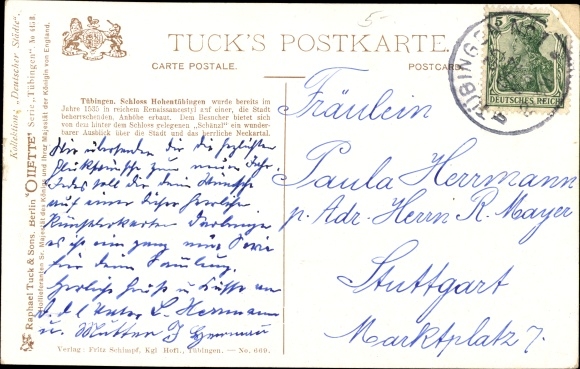 TUCK'S POSTKARTE.
CARTE POSTALE.
POSTCARD
5
DEUTSCHES REICH
TÜBINGEN
Kollektion „Deutscher Städte“.
Serie „Tübingen“
Raphael Tuck & Sons. Berlin "OILETTE"
Hoflieferanten Sr. Majestät des Königs und Ihrer Majestät der Königin von England.
Tübingen. Schloss Hohentübingen wurde bereits im
Jahre 1535 in reichem Renaissancestyl auf einer, die Stadt
beherrschenden, Anhöhe erbaut. Dem Besucher bietet sich
von dem hinter dem Schloss gelegenen „Schänzl“ ein wunder-
barer Ausblick über die Stadt und das herrliche Neckartal.
Wir übersenden dir die herzlichsten
Glückwünsche zum neuen Jahr.
auf einer dieser herrlichen
Künstlerkarten
es ist ein ganz neue Serie
für dein Sammlung.
Herzliche Grüße u. Küsse an
d. d. l. Vater L. Herrmann
u. Mutter
Fräulein
Paula Herrmann
p. Adr. Herrn R. Mayer
Stuttgart
Marktplatz 7.
Verlag: Fritz Schimpf, Kgl Hofl., Tübingen. — No. 669.